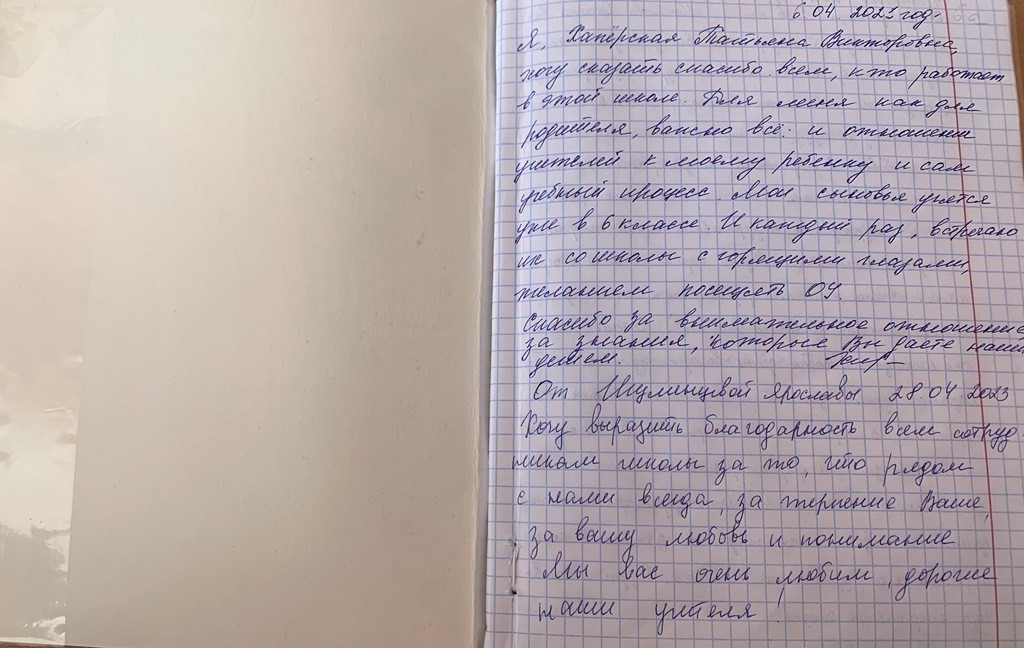 6 04 2023 год.
Я, Хапёрская Татьяна Викторовна,
хочу сказать спасибо всем, кто работает
в этой школе. Для меня как для
родителя, важно всё: и отношение
учителей к моему ребенку и сам
учебный процесс. Мои сыновья учатся
уже в 6 классе. И каждый раз, встречаю
их со школы с горящими глазами,
желанием посещать ОУ.
Спасибо за внимательное отношение
за знания, которые Вы даете нашим
детям.
От Шулинцевой Ярославы 28.04.2023
Хочу выразить благодарность всем сотруд
никам школы за то, что рядом
с нами всегда, за терпение Ваше,
за вашу любовь и понимание
Мы вас очень любим, дорогие
наши учителя!